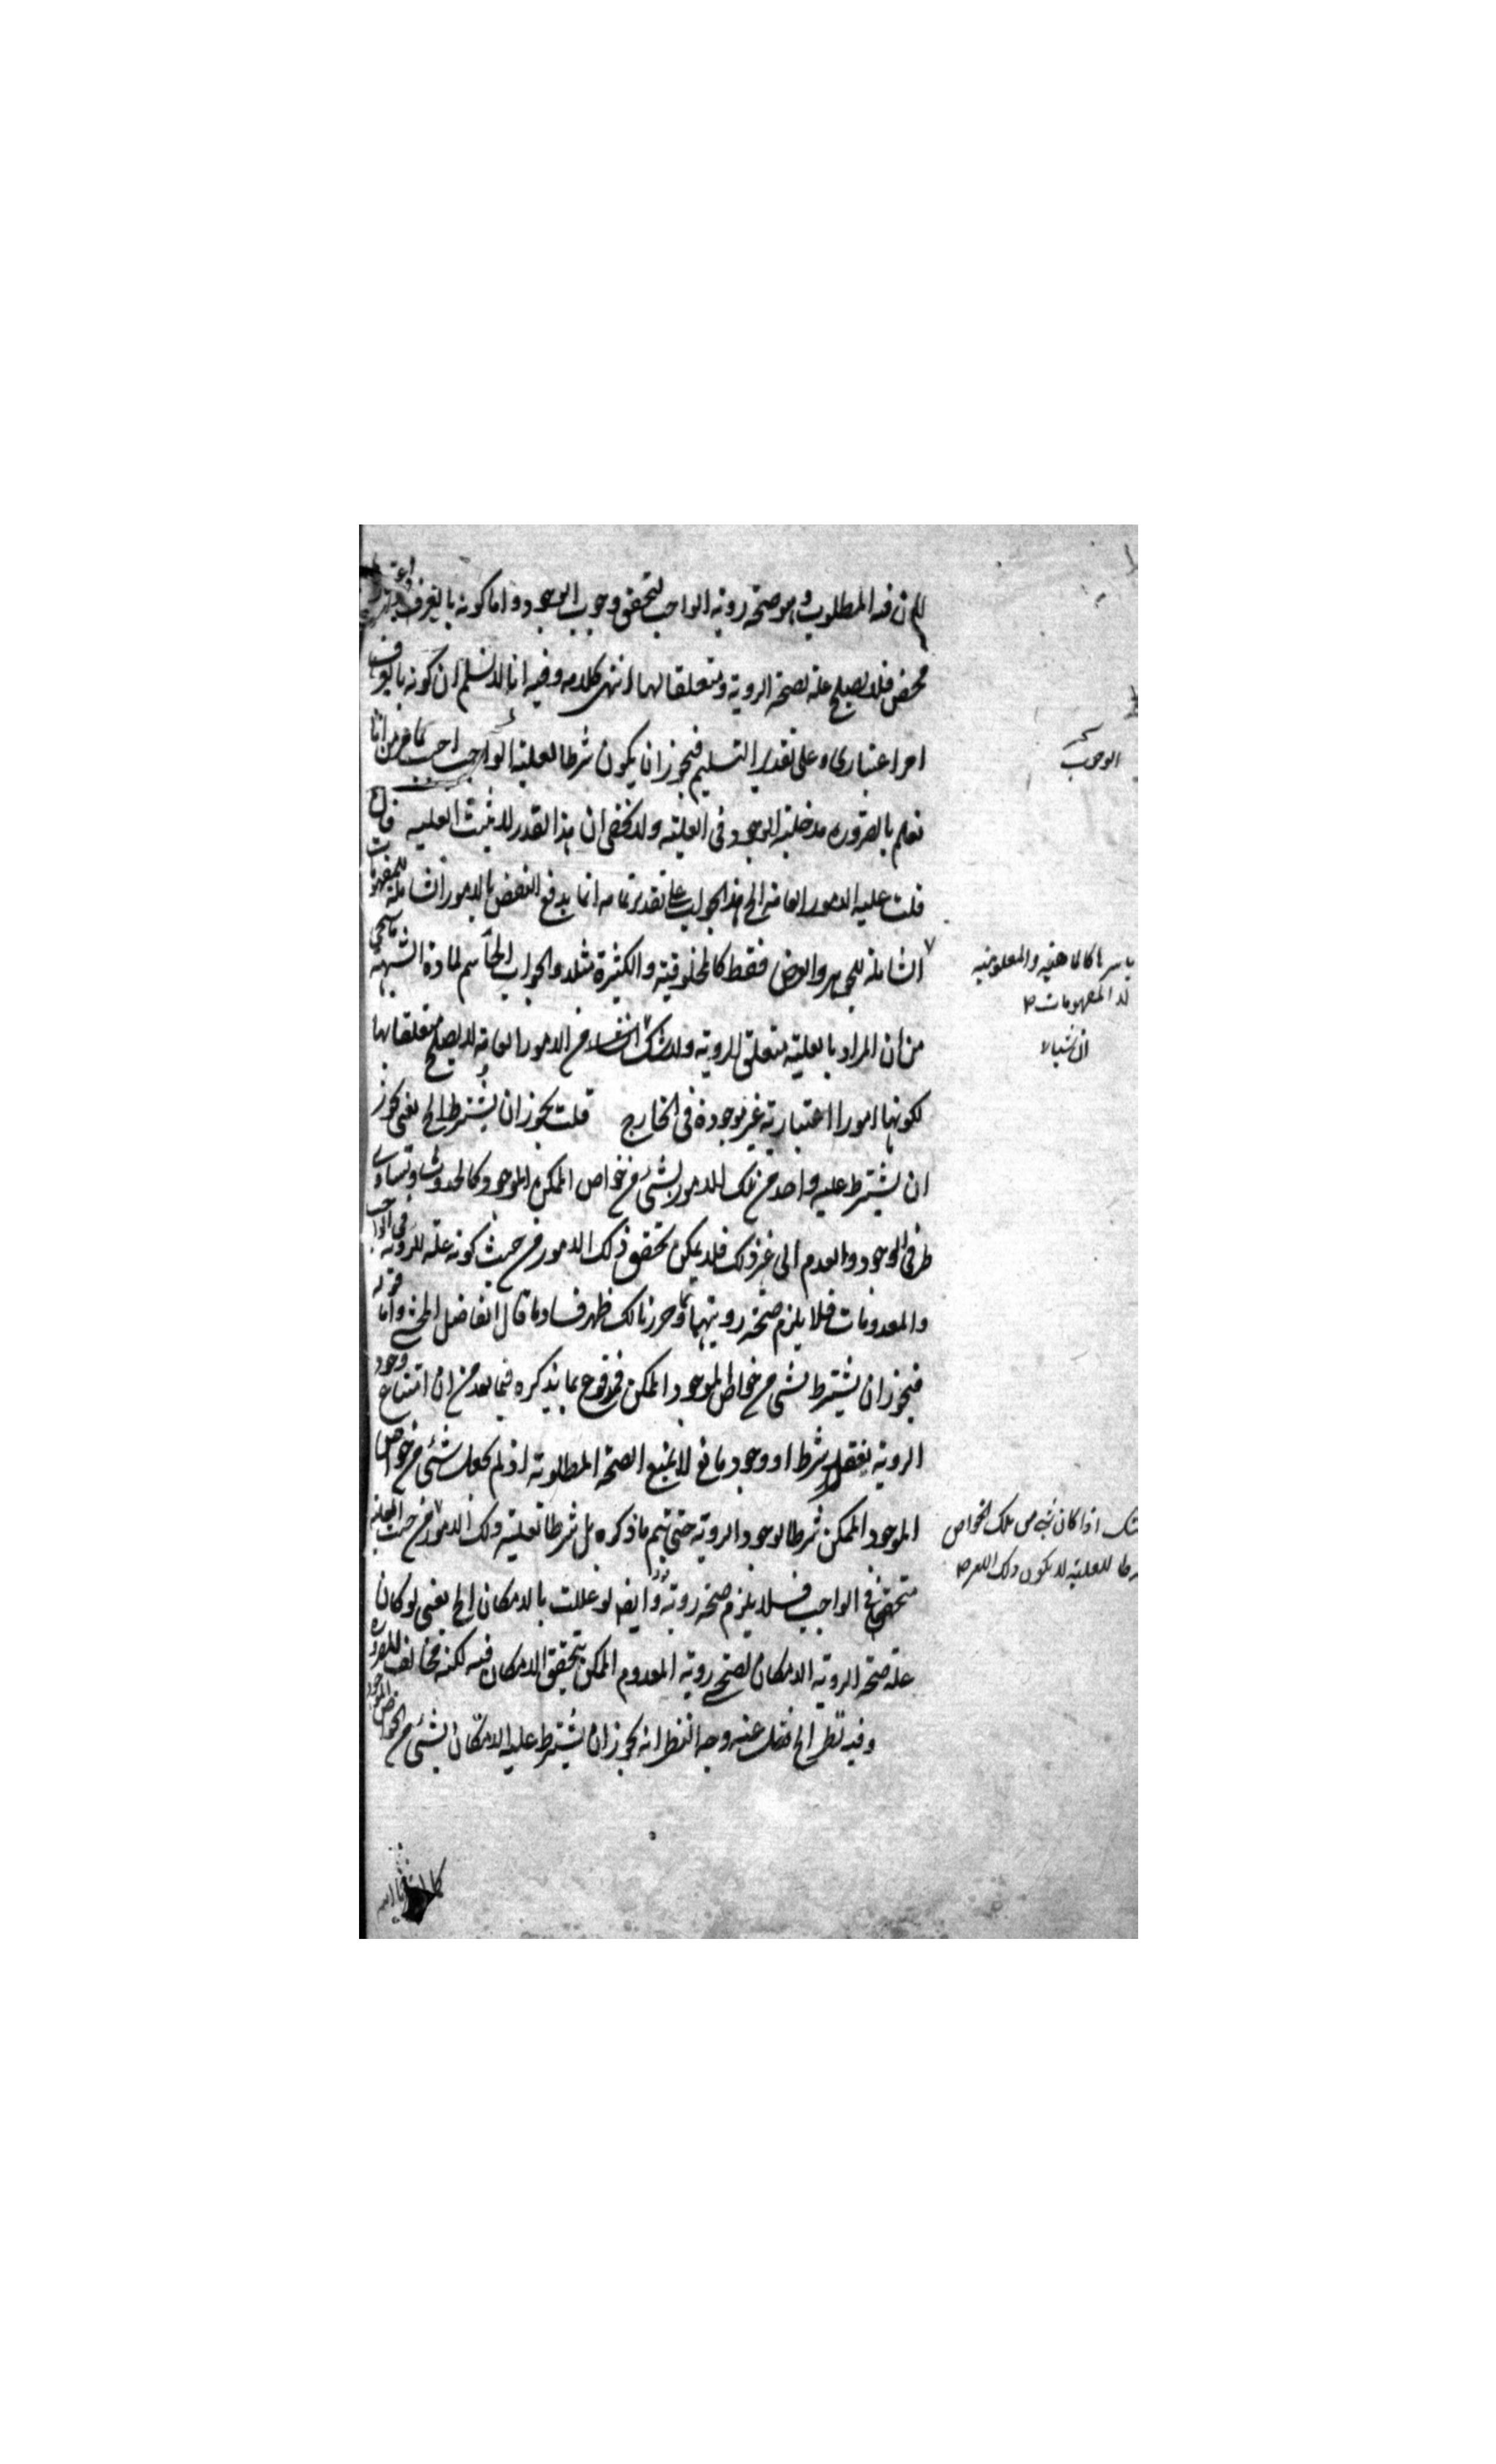 المطلوب وهو صحة روية الواجب لتحقق وجوب الوجود واما كونه بالغير
محض فلا يصلح علة لصحة الروية ومتعلقا لها انتهى كلامه وفيه انا لا نسلم ان كونه
امر اعتباري على تقدير التسليم فيجوز ان يكون شرطا لعلية من انا
نعلم بالضرورة مدخلية الوجود في العلية ولا يخفى ان هذا القدر لا يثبت العلية
قلت علية الامور العامة الخ هذا الجواب على تقدير تمامه انما يدفع النقض بالامور الشاملة للمفهومات
الشاملة للجوهر والعرض فقط كالمخلوقية والكثيرة مثلا والجواب الحاسم لمادة الشبهة ما سيجئ
من ان المراد بالعلية متعلق الروية ولا شك ان من الامور العامة لا يصلح متعلقا لها
لكونها امورا اعتبارية غير موجودة في الخارج قلت يجوز ان يشترط الخ يعني يجوز
ان يشترط علية واحد من تلك الامور بشئ من خواص الممكن الموجود كالحدوث وتساوى
طرفي الوجود والعدم الى غير ذلك فلا يمكن تحقق ذلك الامور من حيث كونه علة للروية في الواجب
والمعدومات فلا يلزم صحة رويتهما وبما حررنا لك ظهر فساد ما قال الفاضل المحشي واما قوله
فيجوز ان يشترط بشئ من خواص الموجود الممكن فمدفوع بما يذكره فيما بعد من ان امتناع وجود
الروية بفقد شرط او وجود مانع لا يمنع الصحة المطلوبة اذ لم يجعل شئ من خواص
الموجود الممكن شرطا لوجود الروية حتى يتم ما ذكره بل شرطا لعلية ذلك الامور من حيث العلية
متحققا في الواجب فلا يلزم صحة رويته وايضا لو عللت بالامكان الخ يعني لو كان
علة صحة الروية الامكان لصح روية المعدوم الممكن لتحقق الامكان فيه لكنه مخالف للضرورة
وفيه نظر الخ نقل عنه وجه النظر انه يجوز ان يشترط علية الامكان بشئ من خواص الموجود
الوجوب
كالماهية والمعلومية
المفهومات
اذا كان شئ من تلك الخواص
للعلية لا يكون ذلك الامر